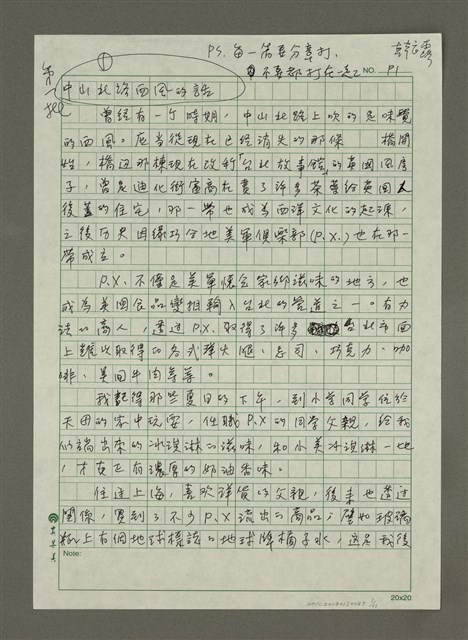 P.S. 每一篇要分章打，
不要都打在一起
韓良露
NO. P1
第一段
①
中山北路西風的話
曾經有一個時期，中山北路上吹的是味覺
的西風。應當從現在已經消失的那條
性，橋邊那棟現在改稱「台北故事館」的英國風房
子，曾是迪化街富商在賣了許多茶葉給英國人
後蓋的住宅，那一帶也成為西洋文化的起源，
之後歷史因緣巧合地美軍俱樂部(P.X.)也在那一
帶成立。
P.X.不僅是美軍懷念家鄉滋味的地方，也
成為美國食品變相輸入台北的管道之一。有力
法的商人，透過P.X.取得了許多台北市面
上難以取得的各式火腿、起司、巧克力、咖
啡、美國牛肉等等。
我記得那些夏日的下午，到小學同學位於
天母的家中玩耍，任職P.X的同學父親，給我
們端出來的冰淇淋的滋味，和小美冰淇淋一比
，才真正有濃厚的奶油香味。
住過上海，喜歡洋貨的父親，後來也透過
關係，買到了不少P.X流出的商品；譬如玻璃
瓶上有個地球標誌的地球牌橘子水，這是我後
Note:
20x20